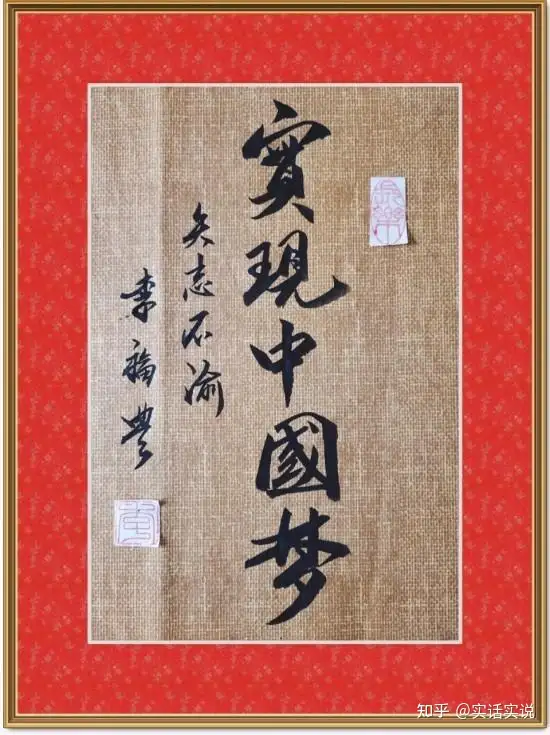 實現中國梦
矢志不渝
李福豊
知乎 @实话实说